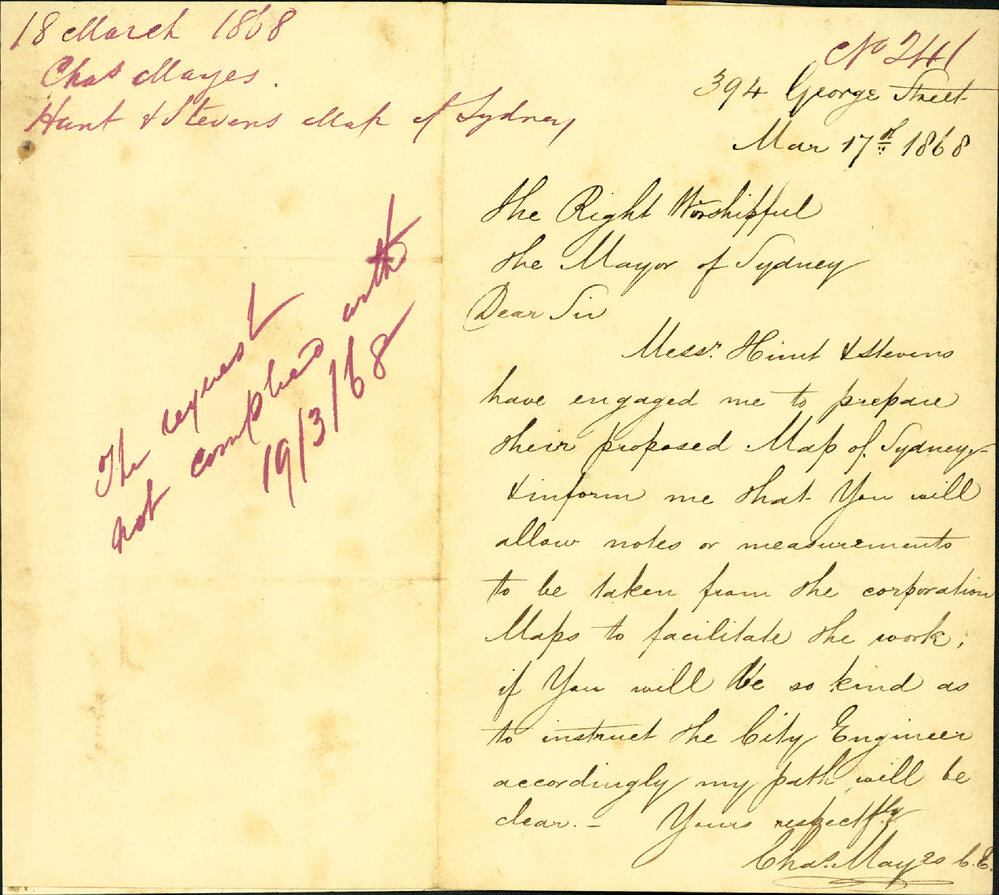 18 March 1868
Chas Mayes.
Hunt & Stevens Map of Sydney
The request
not complied with
19/3/68
No 241
394 George Street
Mar 17th 1868
The Right Worshipful
the Mayor of Sydney
Dear Sir
Messrs. Hunt & Stevens
have engaged me to prepare
their proposed Map of Sydney
& inform me that You will
allow notes or measurements
to be taken from the corporation
Maps to facilitate the work;
if You will be so kind as
to instruct the City Engineer
accordingly my path will be
clear. – Yours respectfly
Chas. Mayes C.E.